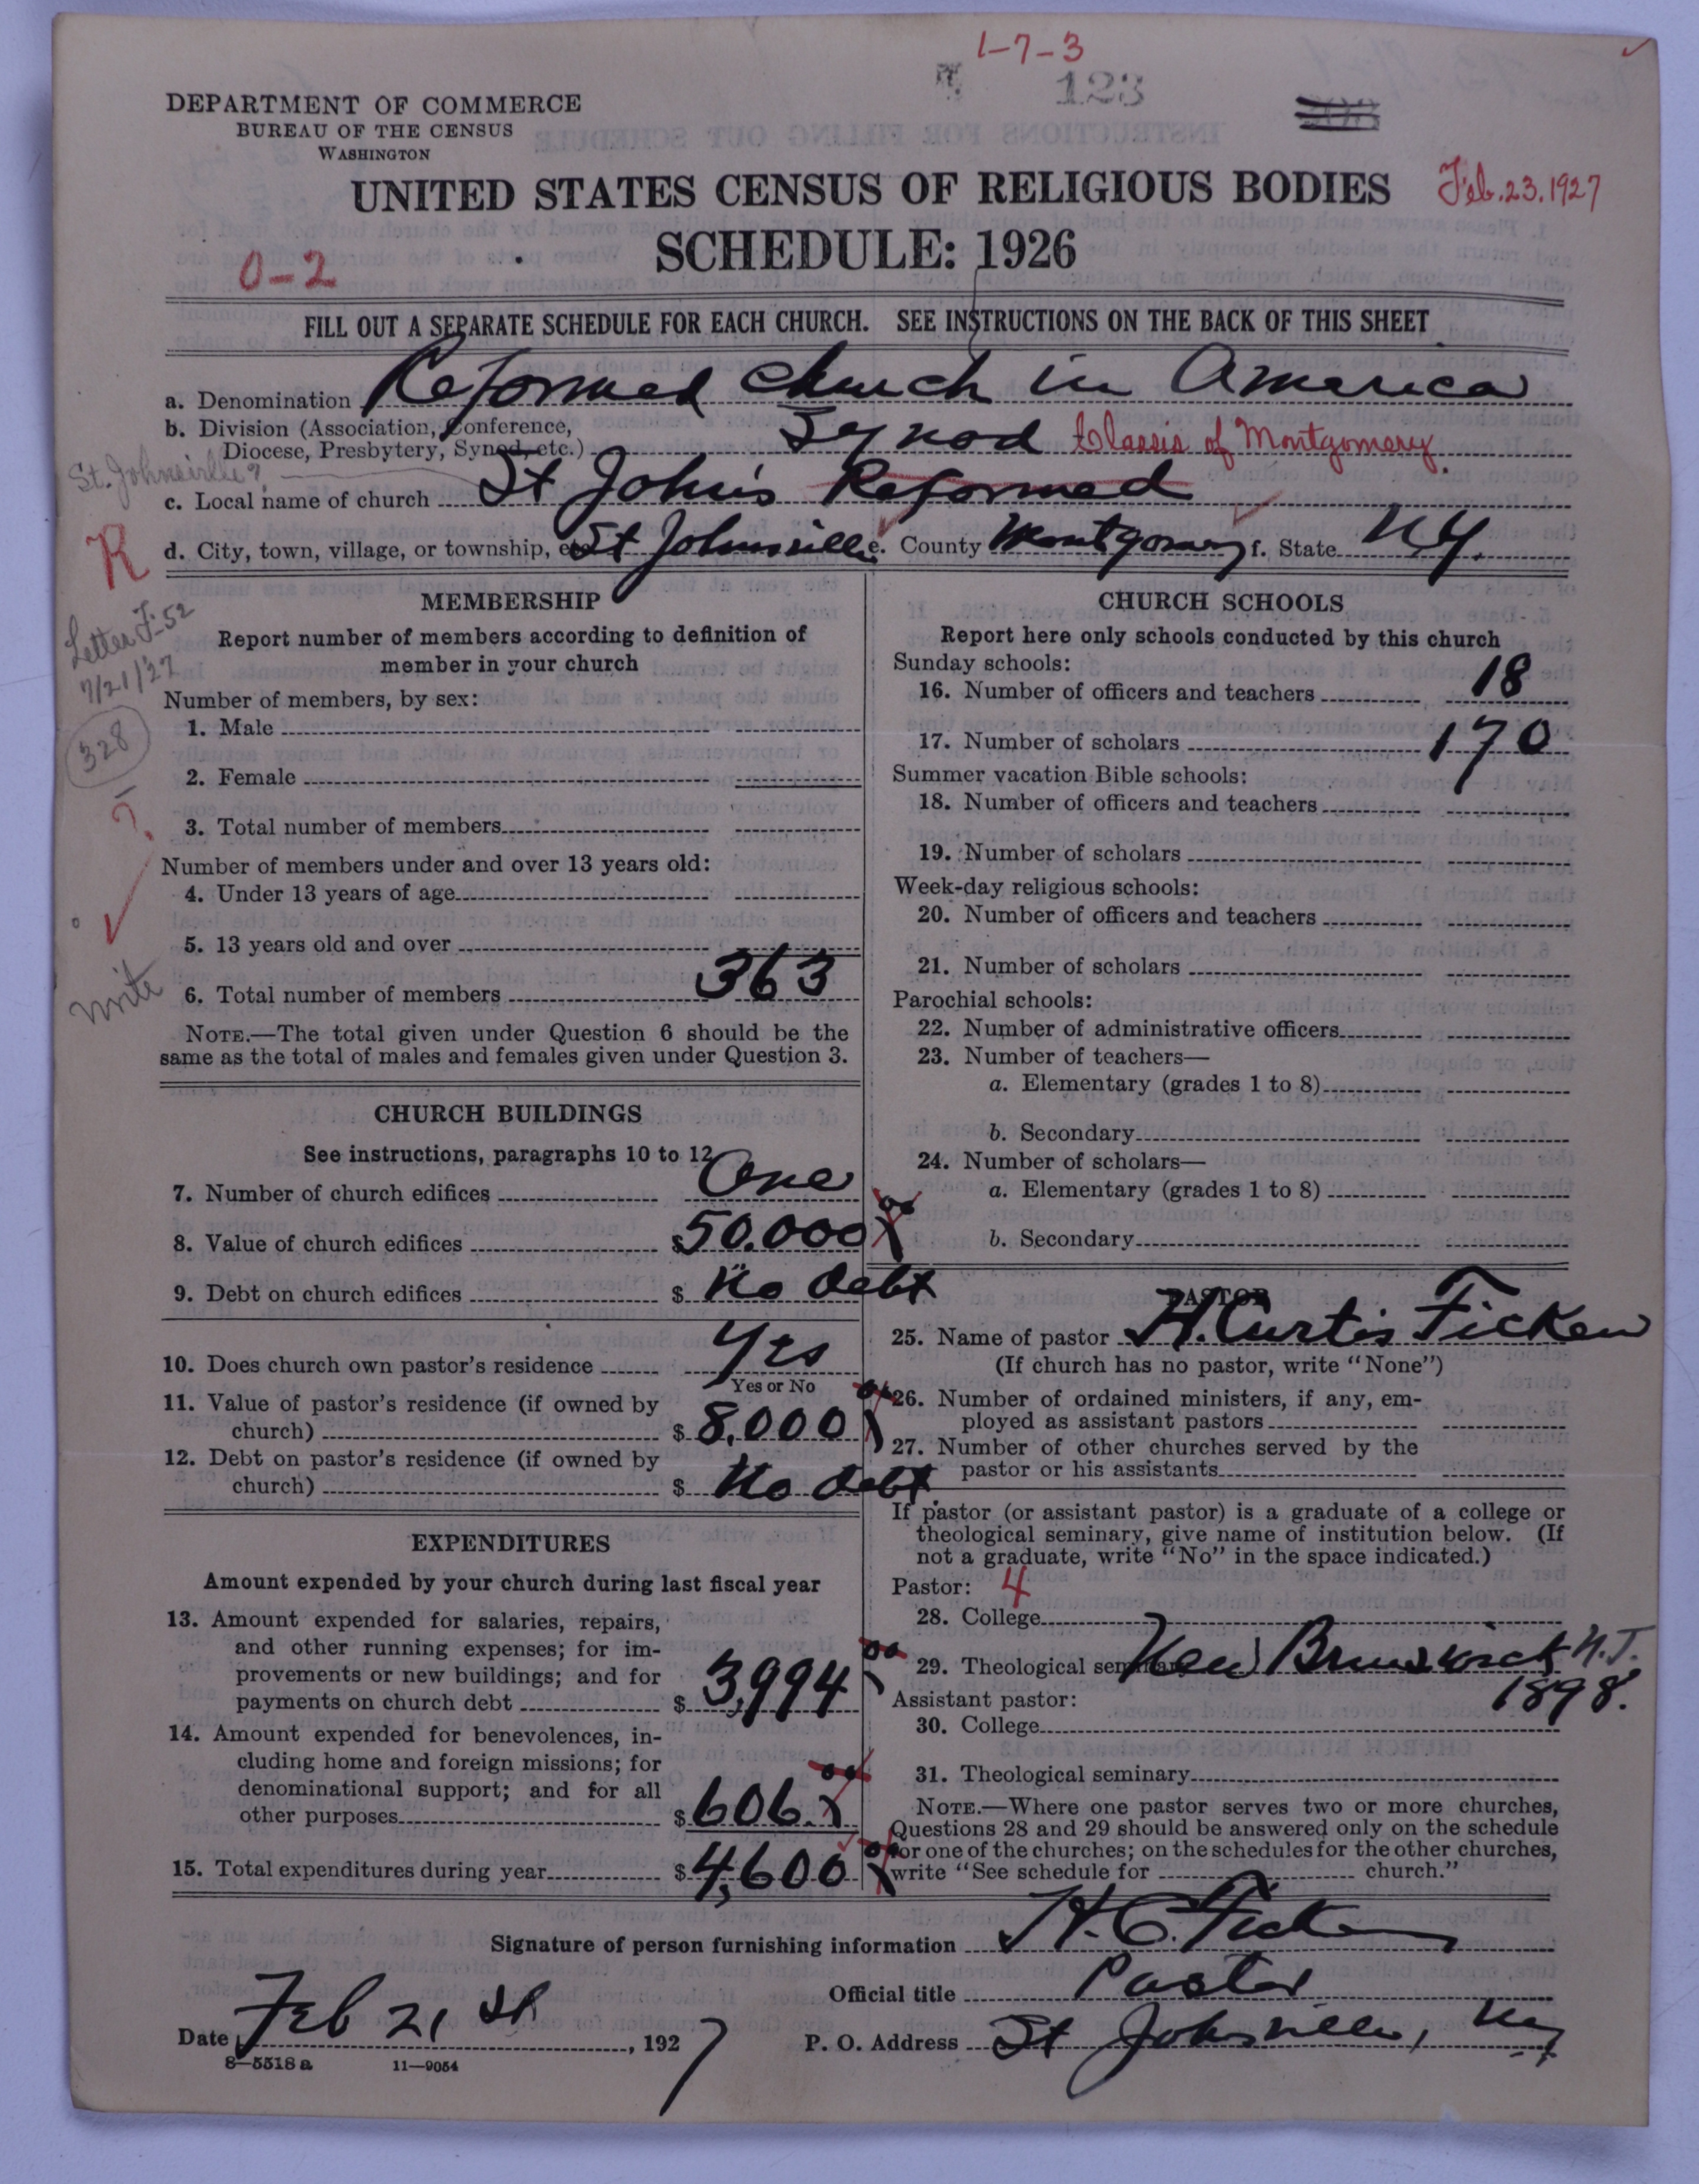 1-7-3
123
DEPARTMENT OF COMMERCE
BUREAU OF THE CENSUS
WASHINGTON
UNITED STATES CENSUS OF RELIGIOUS BODIES
Feb. 23. 1927
SCHEDULE: 1926
0-2
FILL OUT A SEPARATE SCHEDULE FOR EACH CHURCH. SEE INSTRUCTIONS ON THE BACK OF THIS SHEET
a. Denomination Reformed Church in America
b. Division (Association, Conference,
Diocese, Presbytery, Synod, etc.) Synod Classis of Montgomery
St. Johnsville?
c. Local name of church St John's Reformed
d. City, town, village, or township, etc. St Johnsville e. County Montgomery f. State N.Y.
R
Letter F-52
7/21/27
328
?
write
MEMBERSHIP
Report number of members according to definition of
member in your church
Number of members, by sex:
1. Male
2. Female
3. Total number of members
Number of members under and over 13 years old:
4. Under 13 years of age
5. 13 years old and over
6. Total number of members 363
NOTE.—The total given under Question 6 should be the
same as the total of males and females given under Question 3.
CHURCH BUILDINGS
See instructions, paragraphs 10 to 12
7. Number of church edifices One
8. Value of church edifices $50.000 00
9. Debt on church edifices $ No debt
10. Does church own pastor's residence Yes
Yes or No
11. Value of pastor's residence (if owned by
church) $ 8,000 00
12. Debt on pastor's residence (if owned by
church) $ No debt.
EXPENDITURES
Amount expended by your church during last fiscal year
13. Amount expended for salaries, repairs,
and other running expenses; for im-
provements or new buildings; and for
payments on church debt $ 3,994 00
14. Amount expended for benevolences, in-
cluding home and foreign missions; for
denominational support; and for all
other purposes $ 606. 00
15. Total expenditures during year $ 4,600 00
CHURCH SCHOOLS
Report here only schools conducted by this church
Sunday schools:
16. Number of officers and teachers 18
17. Number of scholars 170
Summer vacation Bible schools:
18. Number of officers and teachers
19. Number of scholars
Week-day religious schools:
20. Number of officers and teachers
21. Number of scholars
Parochial schools:
22. Number of administrative officers
23. Number of teachers—
a. Elementary (grades 1 to 8)
b. Secondary
24. Number of scholars—
a. Elementary (grades 1 to 8)
b. Secondary
PASTOR
25. Name of pastor H. Curtis Ficken
(If church has no pastor, write "None")
26. Number of ordained ministers, if any, em-
ployed as assistant pastors
27. Number of other churches served by the
pastor or his assistants
If pastor (or assistant pastor) is a graduate of a college or
theological seminary, give name of institution below. (If
not a graduate, write "No" in the space indicated.)
Pastor: 4
28. College
29. Theological seminary New Brunswick N.J.
1898.
Assistant pastor:
30. College
31. Theological seminary
NOTE.—Where one pastor serves two or more churches,
Questions 28 and 29 should be answered only on the schedule
for one of the churches; on the schedules for the other churches,
write "See schedule for church."
Signature of person furnishing information H. C. Ficken
Official title Pastor
Date Feb 21 st, 1927
P. O. Address St Johnsville, N.Y.
8-5518a 11-9054